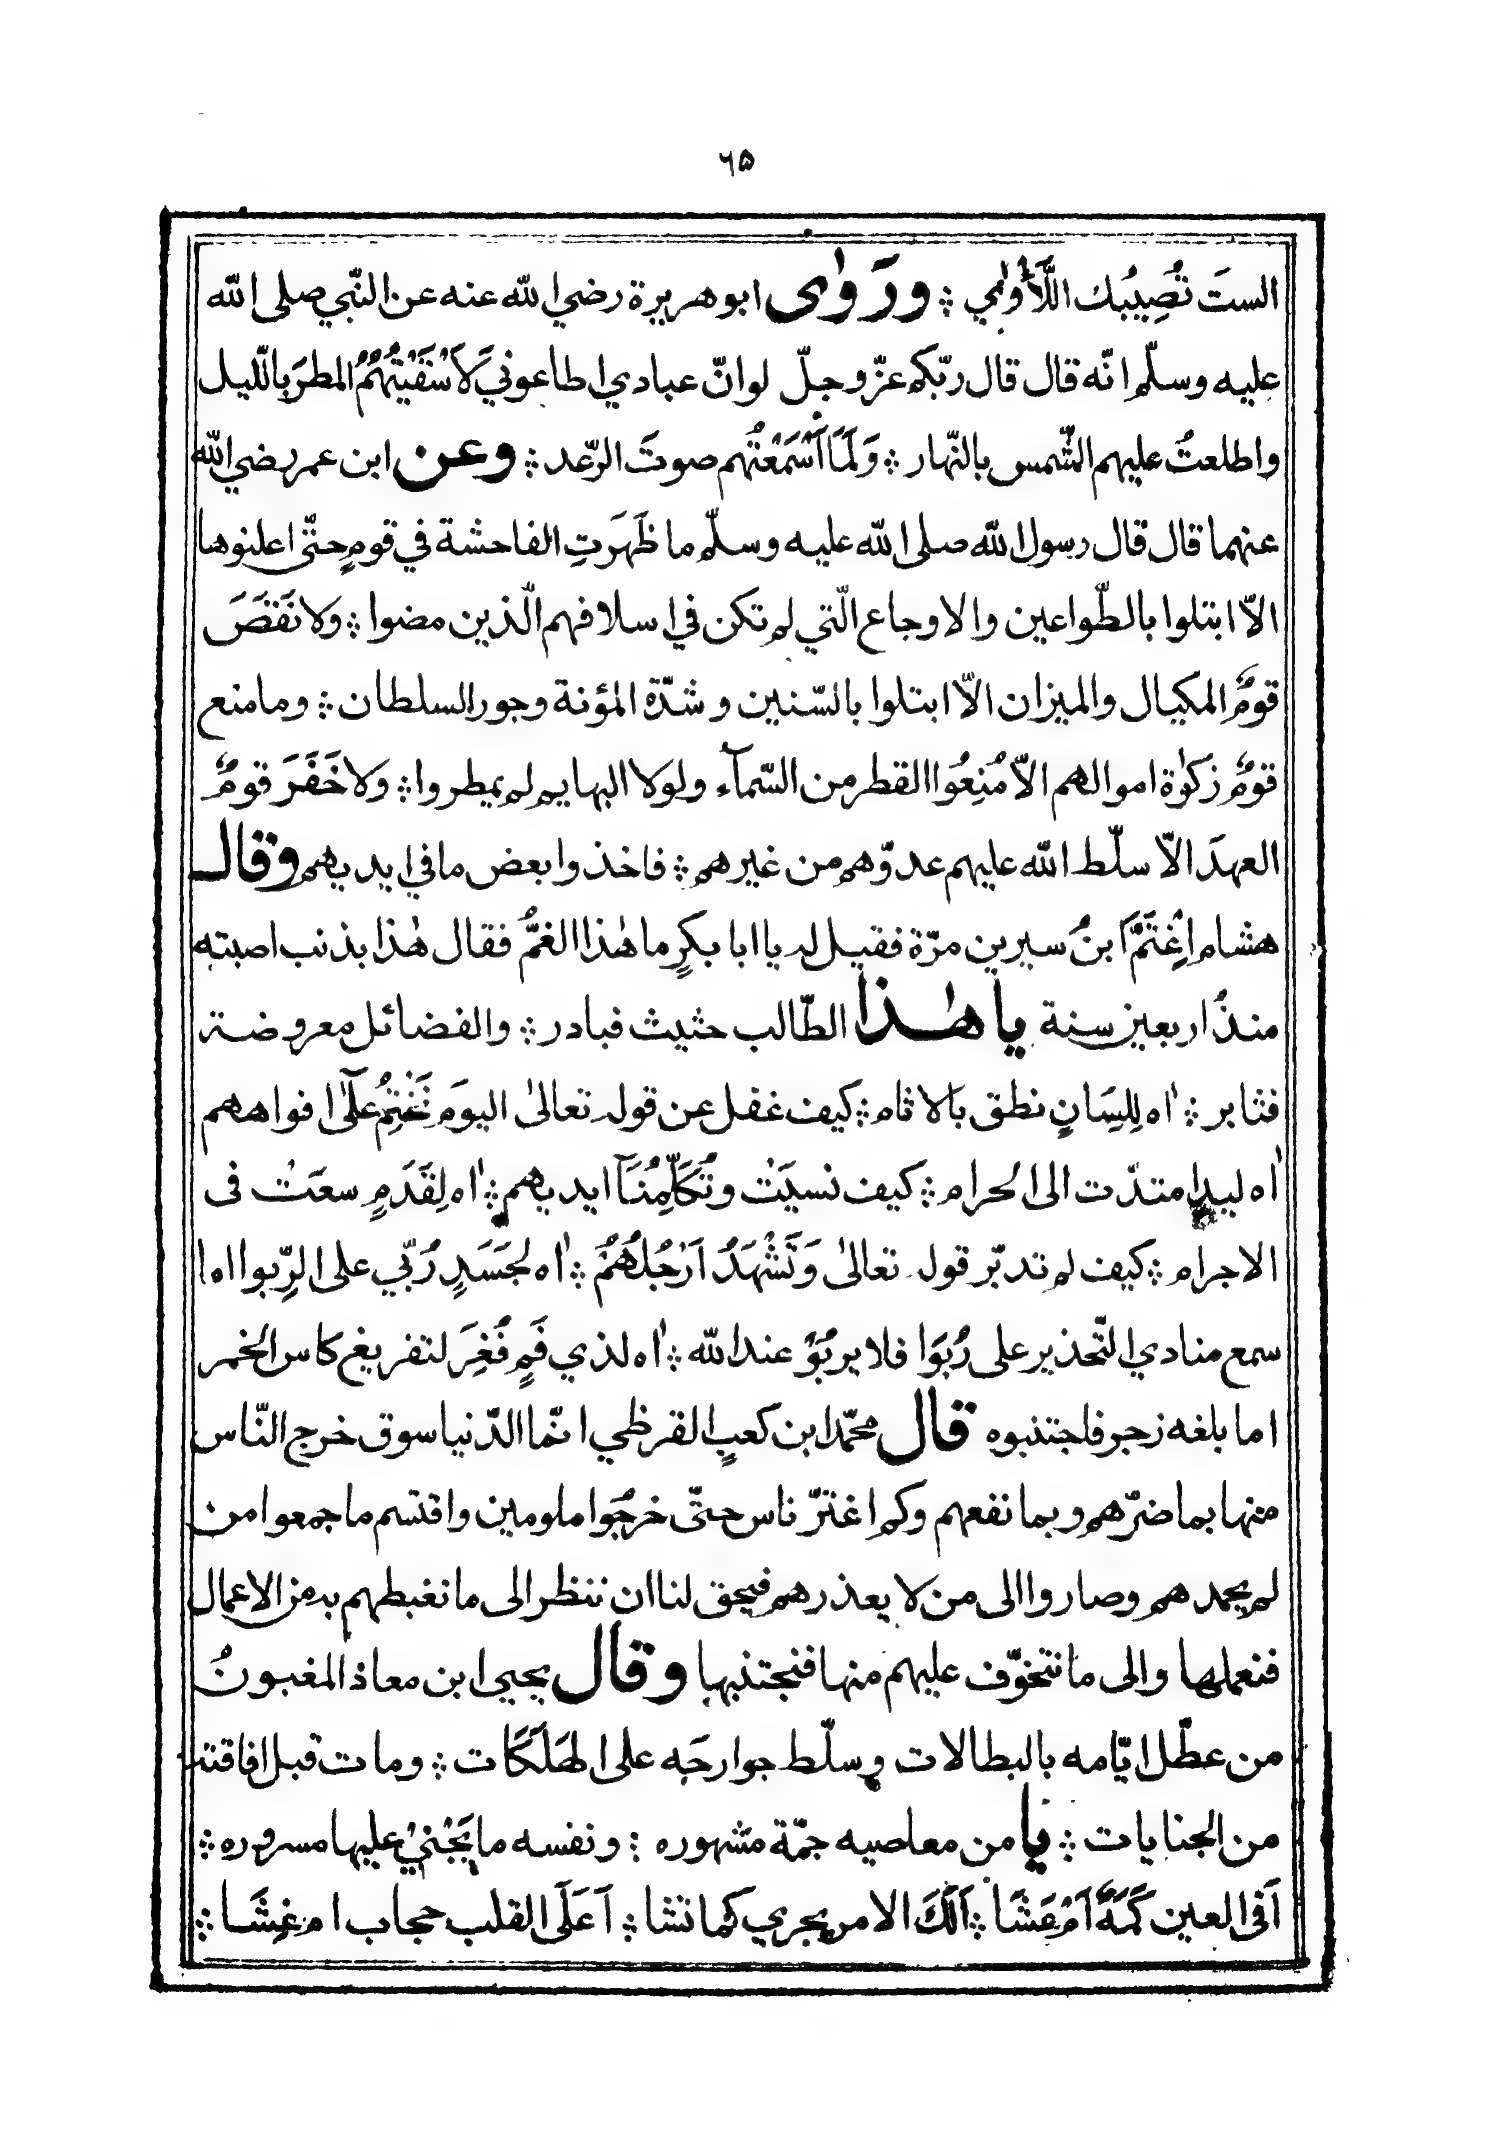 ٦۵
الستَ تُصِيبُك اللَّأْوٰمي ؞ ورَوٰى ابو هريرة رضي الله عنه عن النّبي صلى الله
عليه وسلّم انّه قال قال ربّكم عزّ وجلّ لوانّ عبادي اطاعوني لَاَسْقَيْتُهُمُ المطرَ باللّيل
واطلعتُ عليهم الشّمس بالنّهار ؞ وَلَمَا اَسْمَعْتُهم صوتَ الرّعد ؞ وعن ابن عمر رضي الله
عنهما قال قال رسول الله صلى الله عليه وسلّم ما ظَهَرَتِ الفاحشة في قومٍ حتّى اعلنوها
الّا ابتلوا بالطّواعين والاوجاع الّتي لم تكن في اسلافهم الّذين مضوا ؞ ولا نَقَصَ
قومٌ المكيال والميزان الّا ابتلوا بالسّنين وشدّة المؤنة وجور السلطان ؞ وما منع
قومٌ زكوٰة اموالهم الّا مُنِعُوا القطر من السّمآء ولولا البهايم لم يمطروا ؞ ولا خَفَرَ قومٌ
العهدَ الّا سلّط الله عليهم عدوّهم من غيرهم ؞ فاخذوا بعض ما في ايديهم وقال
هشام اِغْتَمَّ ابنُ سيرين مرّة فقيل له يا ابا بكرٍ ما هٰذا الغمُّ فقال هٰذا بذنب اصبته
منذُ اربعين سنة يا هٰذا الطّالب حثيث فبادر ؞ والفضائل معروضة
فثابر ؞ اٰه لِلِسَانٍ نطق بالاثام ؞ كيف غفل عن قوله تعالىٰ اليومَ نَخْتِمُ علىٰٓ افواههم
اٰه ليدٍ امتدّت الى الحرام ؞ كيف نسيَتْ وتُكَلِّمُنَآ ايديهم ؞ اٰه لِقَدَمٍ سعَتْ فى
الاجرام ؞ كيف لم تدبّر قوله تعالىٰ وَتَشْهَدُ اَرْجُلُهُمْ ؞ اٰه لجَسَدٍ رُبّي على الرِّبوا اما
سمع منادي التّحذير على رُبُوَا فلا يربُوْ عند الله ؞ اٰه لذي فَمٍ فُغِرَ لتفريغ كاس الخمر
اما بلغه زجر فاجتنبوه قال محمّد ابن كعبٍ القرظي انّما الدّنيا سوق خرج النّاس
منها بما ضرّهم وبما نفعهم وكم اغترّ ناس حتّى خرجُوا ملومين واقتسم ما جمعوا من
لم يحمدهم وصاروا الى من لا يعذرهم فيحق لنا ان ننظر الى ما نغبطهم به من الاعمال
فنعملها والى ما نتخوّف عليهم منها فنجتنبها وقال يحيى ابن معاذ المغبونُ
من عطّل ايّامه بالبطالات وسلّط جوارحَه على الهَلَكَات ؞ ومات قبل افاقته
من الجنايات ؞ يا من معاصيه جمّة مشهوره ؞ ونفسه ما يَجْنيْ عليها مسروره ؞
اَفى العين كَمَهٌ اَمْ عَشَا ؞ اَلَكَ الامر يجري كما تشا ؞ اَعَلَى القلب حجاب ام غِشَا ؞